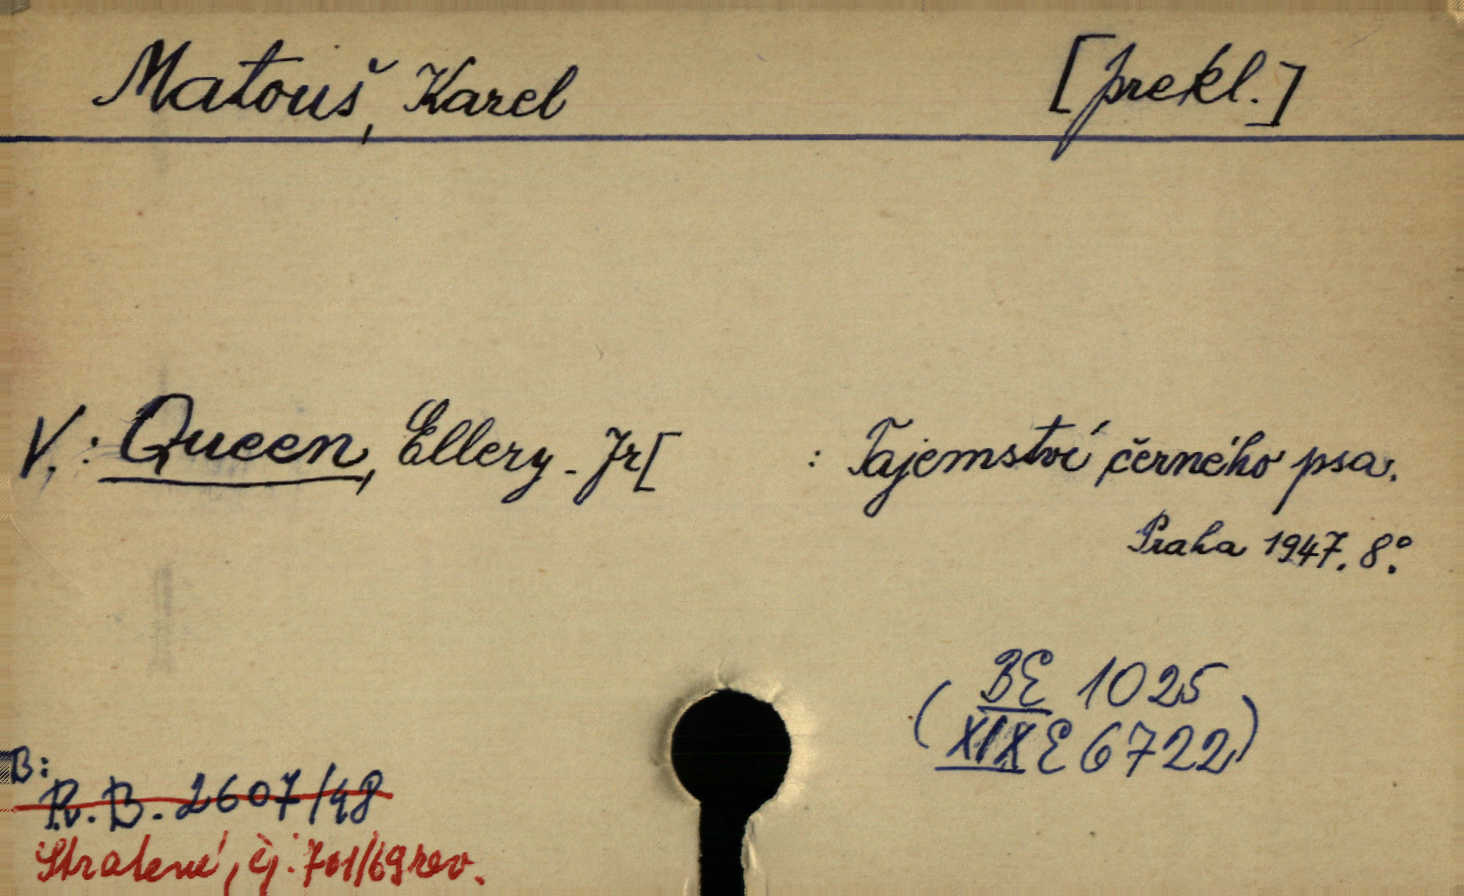 Matouš, Karel [prekl.]
V.: Queen, Ellery - Jr[ : Tajemství černého psa.
Praha 1947. 8°.
(BE 1025
XIX E 6722)
B:
R. B. 2607/48
Stratené, čj. 701/69 rev.